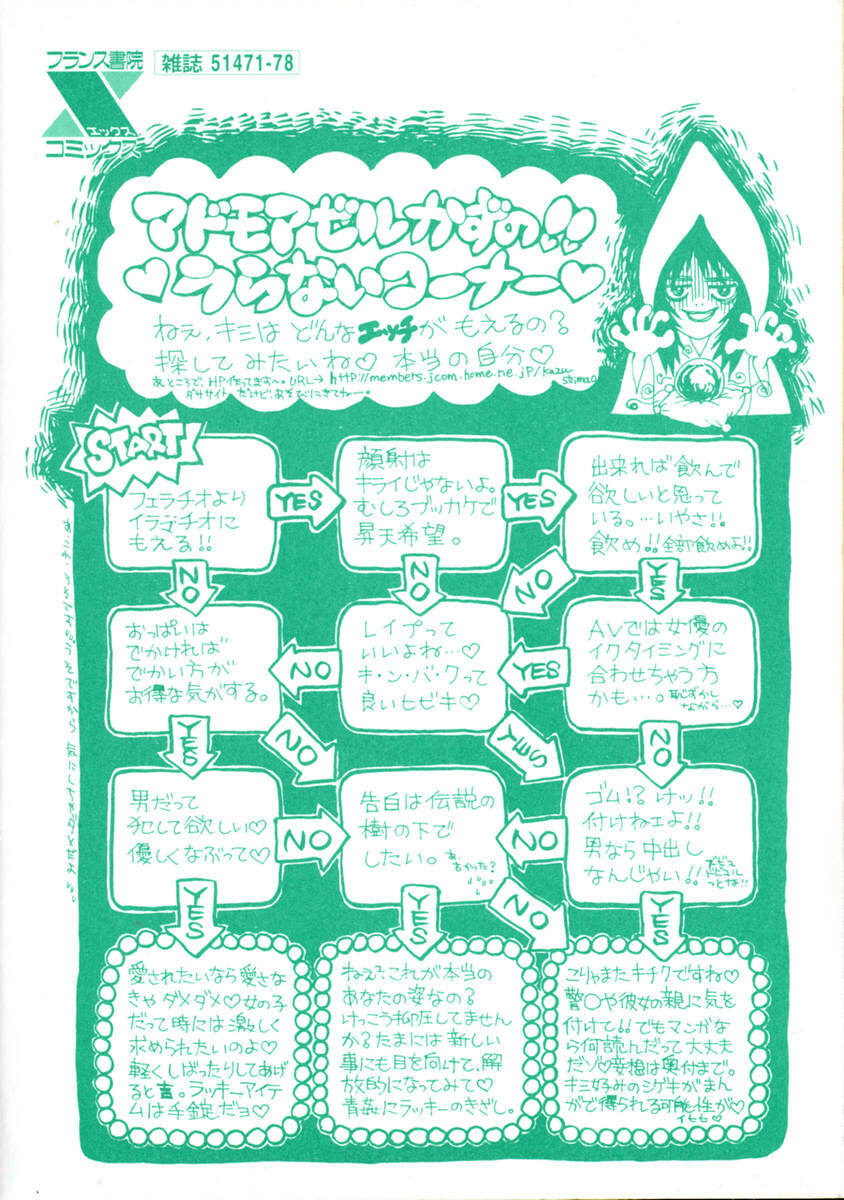 フランス書院
雑誌 51471-78
エックス
コミックス
マドモアゼルかずの!!
♡うらないコーナー♡
ねぇ、キミは どんなエッチが もえるの?
探して みたいね♡ 本当の自分♡
あ、ところで、HP作ってますぅ〜。URL→ http://members.jcom.home.ne.jp/kazu-
shima0
ダササイト だけど、あそびにきてねー。
START
フェラチオより
イラマチオに
もえる!!
YES
顔射は
キライじゃないよ。
むしろブッカケで
昇天希望。
YES
出来れば飲んで
欲しいと思って
いる。…いやさ!!
飲め!!全部飲めよ!!
NO
NO
NO
YES
おっぱいは
でかければ
でかい方が
お得な気がする。
NO
レイプって
いいよね…♡
キ・ン・バ・クって
良いヒビキ♡
YES
AVでは女優の
イクタイミングに
合わせちゃう方
かも…。
恥ずかし
ながら…♡
YES
NO
YES
NO
男だって
犯して欲しい♡
優しくなぶって♡
NO
告白は伝説の
樹の下で
したい。
あ、
古かった?
NO
ゴム!? けッ!!
付けねェよ!!
男なら中出し
なんじゃい!!
YES
YES
NO
YES
愛されたいなら愛さな
きゃ ダメダメ♡女の子
だって時には激しく
求められたいのよ♡
軽くしばったりしてあげ
ると吉。ラッキーアイテ
ムは手錠だヨ♡
ねえ?これが本当の
あなたの姿なの?
けっこう抑圧してません
か?たまには新しい
事にも目を向けて、解
放的になってみて♡
青姦にラッキーのきざし。
こりゃまたキチクですね♡
警〇や彼女の親に気を
付けて!!でもマンガな
ら何読んだって大丈夫
だゾ♡妄想は奥付まで。
キミ好みのシゲキがまん
がで得られる可能性が♡
イヒヒ♡